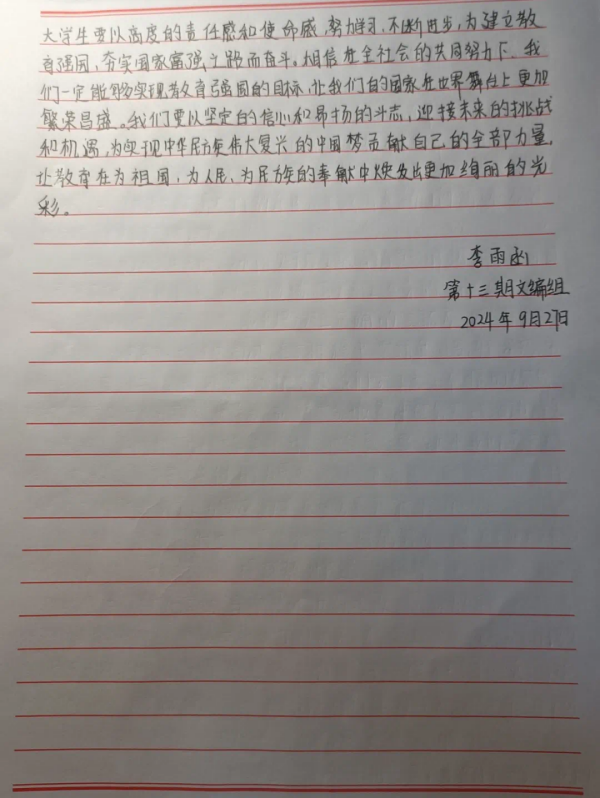 大学生要以高度的责任感和使命感，努力学习，不断进步，为建立教
育强国，夯实国家富强之路而奋斗。相信在全社会的共同努力下，我
们一定能够实现教育强国的目标，让我们的国家在世界舞台上更加
繁荣昌盛。我们要以坚定的信心和昂扬的斗志，迎接未来的挑战
和机遇，为实现中华民族伟大复兴的中国梦贡献自己的全部力量，
让教育在为祖国，为人民、为民族的奉献中焕发出更加绚丽的光
彩。
李雨函
第十三期文编组
2024年9月27日